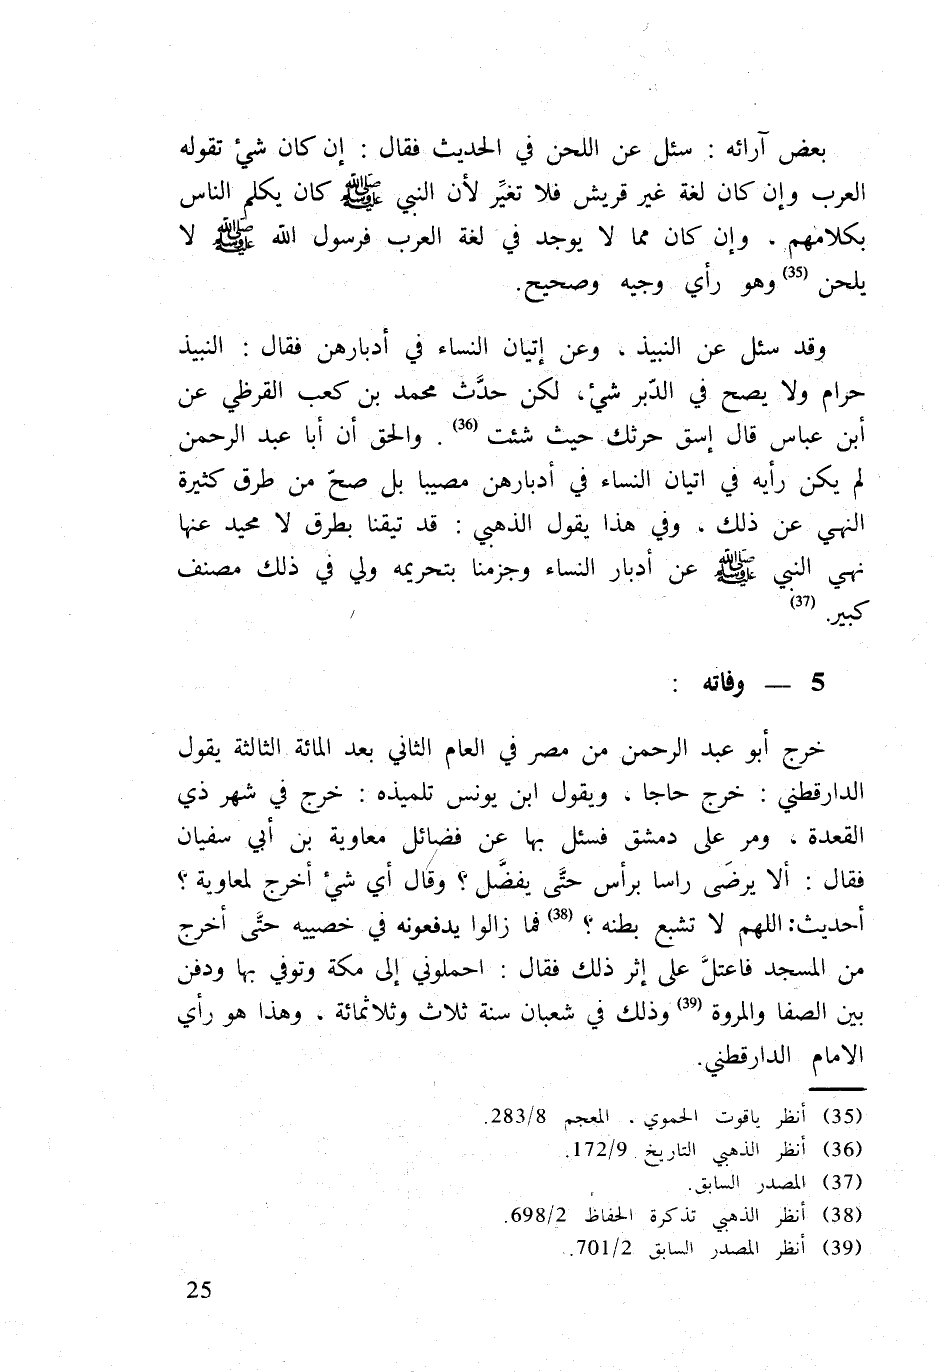 بعض آرائه : سئل عن اللحن في الحديث فقال : إن كان شيْ تقوله
العرب وإن كان لغة غير قريش فلا تغيِّر لأن النبي ﷺ كان يكلم الناس
بكلامهم . وإن كان مما لا يوجد في لغة العرب فرسول الله ﷺ لا
يلحن (35) وهو رأي وجيه وصحيح.
وقد سئل عن النبيذ ، وعن إتيان النساء في أدبارهن فقال : النبيذ
حرام ولا يصح في الدّبر شيْ، لكن حدَّث محمد بن كعب القرظي عن
أبن عباس قال إسق حرثك حيث شئت (36) . والحق أن أبا عبد الرحمن
لم يكن رأيه في اتيان النساء في أدبارهن مصيبا بل صحّ من طرق كثيرة
النهي عن ذلك ، وفي هذا يقول الذهبي : قد تيقنا بطرق لا محيد عنها
نهي النبي ﷺ عن أدبار النساء وجزمنا بتحريمه ولي في ذلك مصنف
كبير. (37)
5 — وفاته :
خرج أبو عبد الرحمن من مصر في العام الثاني بعد المائة الثالثة يقول
الدارقطني : خرج حاجا ، ويقول ابن يونس تلميذه : خرج في شهر ذي
القعدة ، ومر على دمشق فسئل بها عن فضائل معاوية بن أبي سفيان
فقال : ألا يرضَى راسا برأس حتَّى يفضَّل ؟ وقال أي شيْ أخرج لمعاوية ؟
أحديث: اللهم لا تشبع بطنه ؟ (38) فما زالوا يدفعونه في خصييه حتَّى أخرج
من المسجد فاعتلَّ على إثر ذلك فقال : احملوني إلى مكة وتوفي بها ودفن
بين الصفا والمروة (39) وذلك في شعبان سنة ثلاث وثلاثمائة ، وهذا هو رأي
الامام الدارقطني.
(35) أنظر ياقوت الحموي . المعجم 283/8.
(36) أنظر الذهبي التاريخ 172/9.
(37) المصدر السابق.
(38) أنظر الذهبي تذكرة الحفاظ 698/2.
(39) أنظر المصدر السابق 701/2.
25